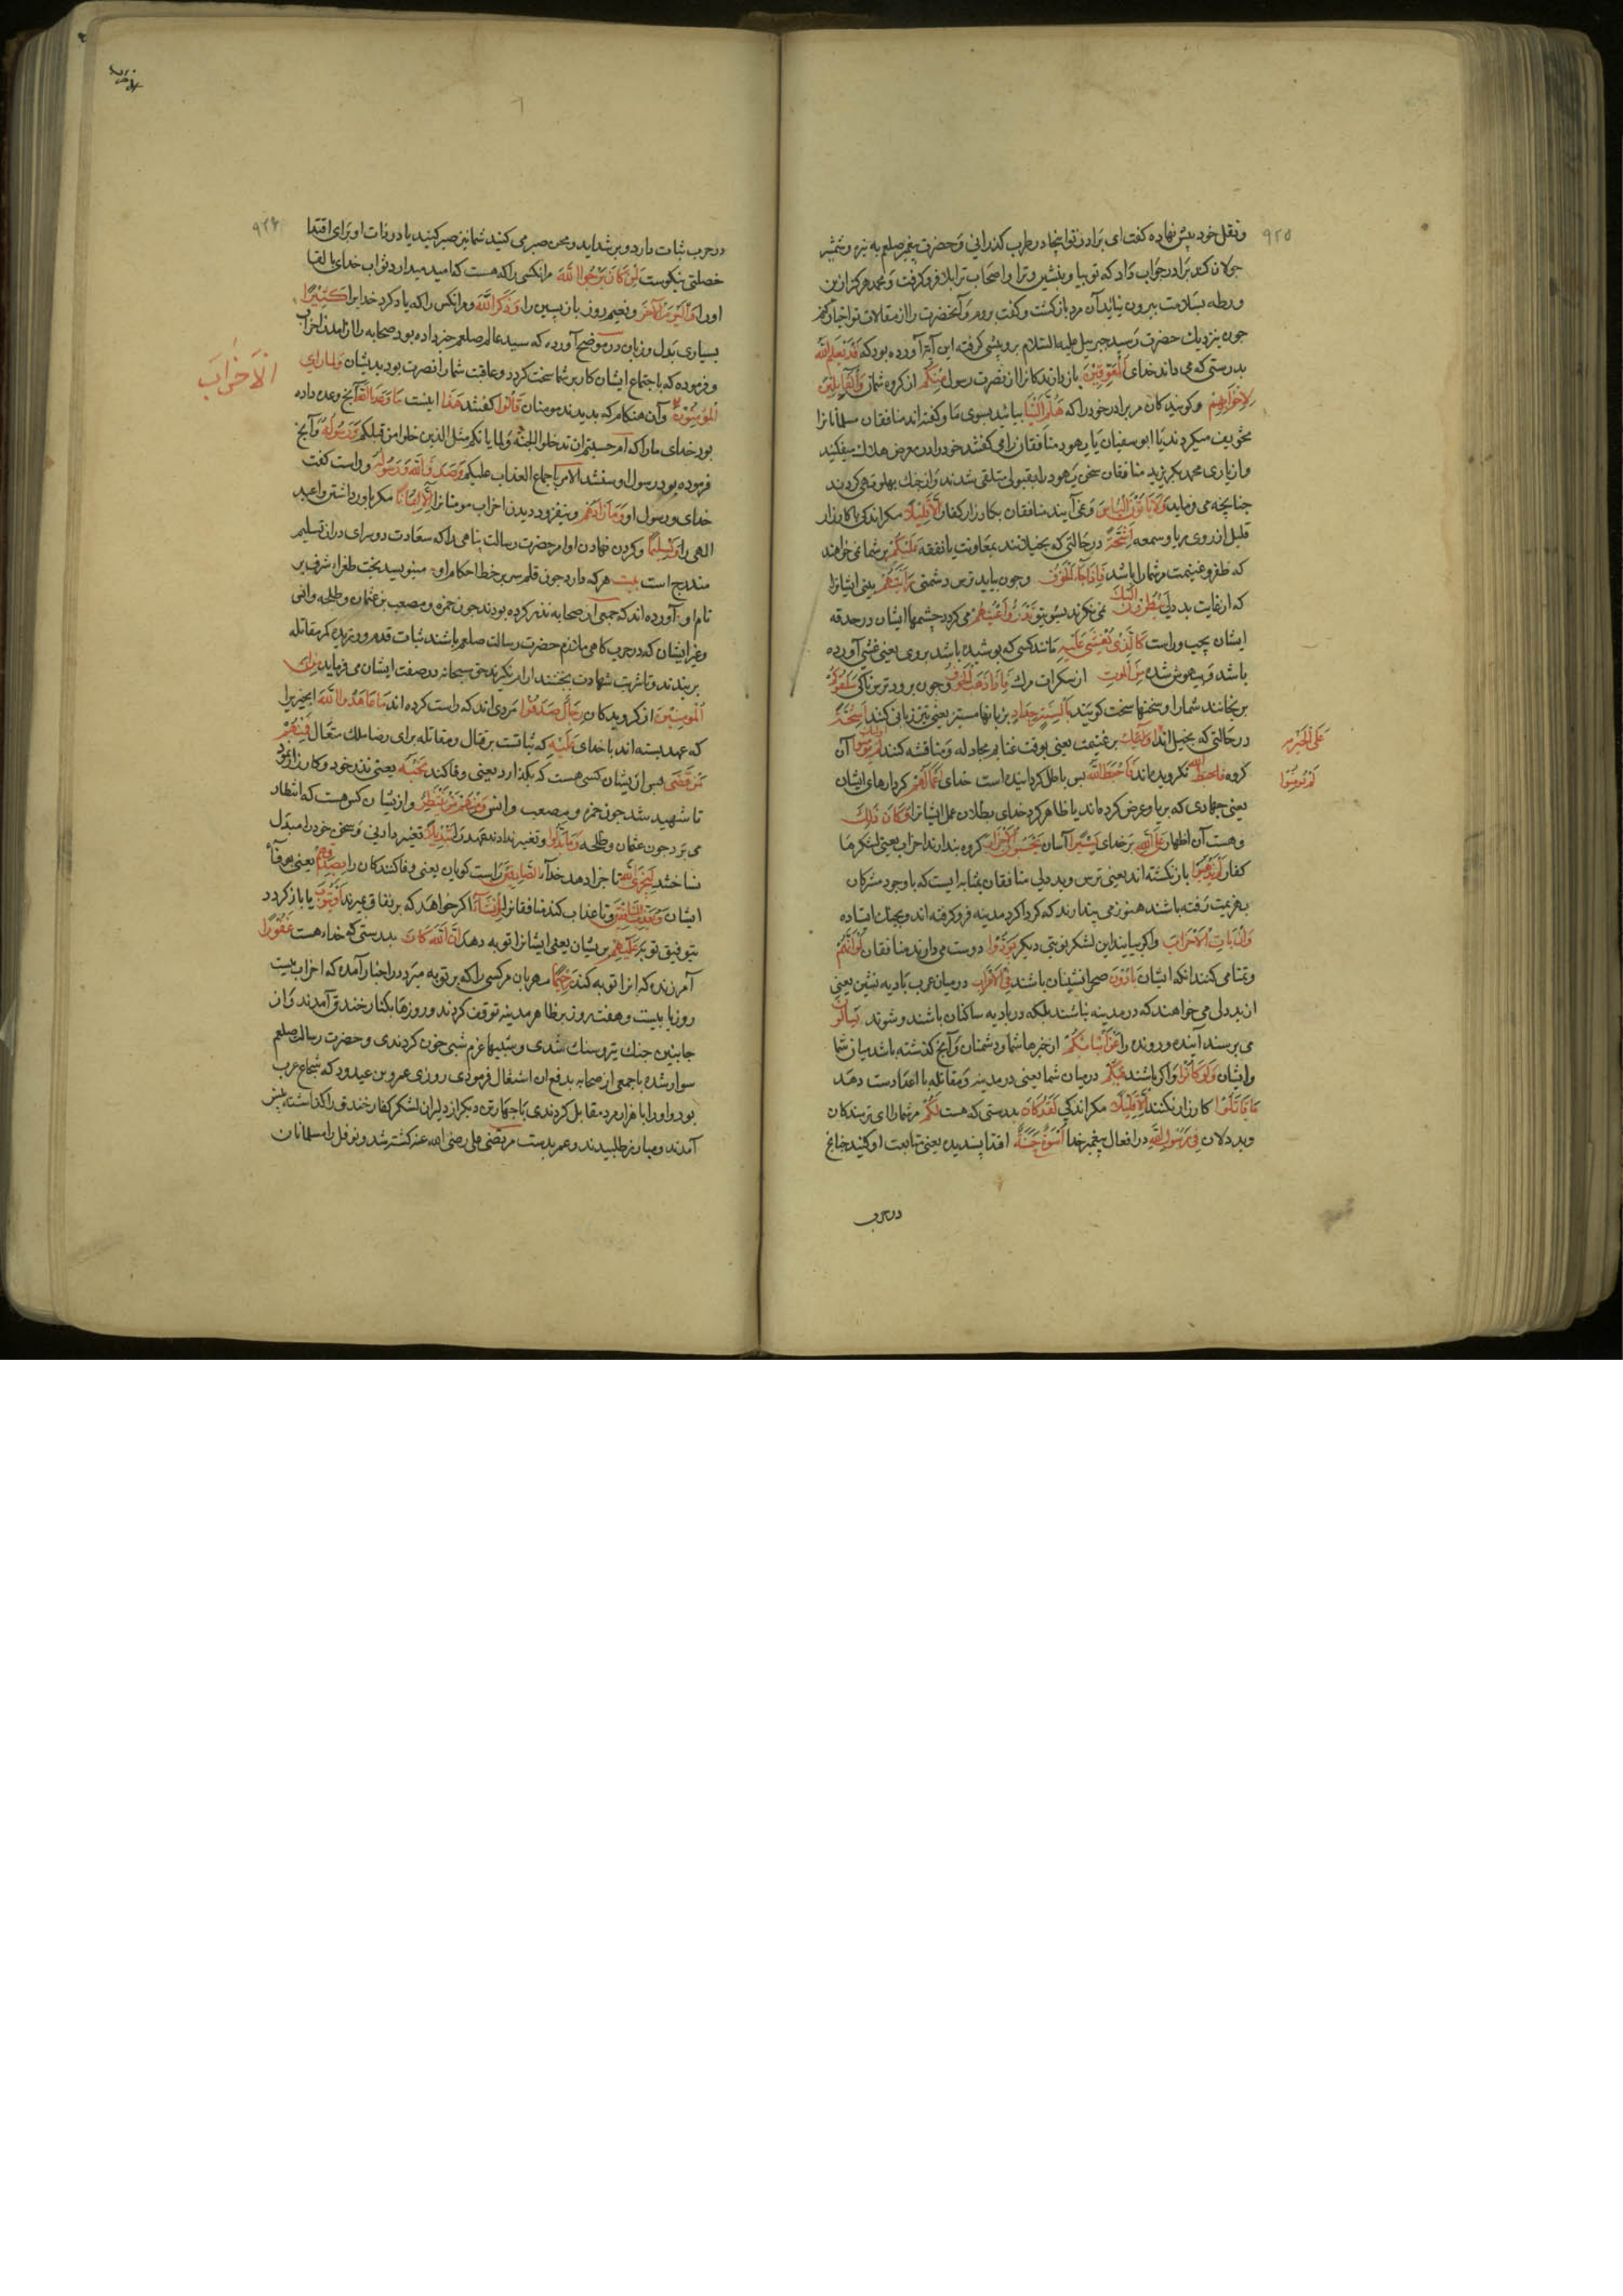 ۹۲۵
ونقل خود پیش نهاده کفت ای برادر تو اینجا در طرب کذرانی وحضرت پیغمبر صلعم به نیزه وشمشیر
جولان کند برادر جواب داد که تو بیا وبنشین وترا واصحاب ترا بلا فرو کرفت ومحمد هرکز ازین
ورطه بسلامت بیرون نیاید آن مرد باز کشت وکفت بروم وآنحضرت را از مقالات تو اخبار کنم
چون نزدیك حضرت رسید جبرییل علیه السلام برو پیشی کرفته این آیه آورده بود که قَدْ یَعْلَمُ اللّٰهُ
بدرستی که می داند خدای اَلْمُعَوِّقِیْنَ باز دارندکانرا از نصرت رسول مِنْکُمْ از کروه شما وَالْقَایِلِیْنَ
لِاِخْوَانِهِمْ وکویندکان مر برادر خود را که هَلُمَّ اِلَیْنَا بیایید بسوی ما وکفته اند منافقان مسلمانانرا
تخویف میکردند یا ابو سفیان یا یهود منافقانرا می کفتند خود را در معرض هلاك میفکنید
واز یاری محمد بکریزید منافقان سخن یهود را بقبول متلقی شدند واز جنك پهلو تهی کردند
چنانچه می فرماید وَلَا یَاْتُوْنَ الْبَاْسَ ونمی آیند منافقان بکارزار کفار اِلَّا قَلِیْلًا مکر اندکی یا کارزار
قلیل از روی ریا وسمعه اَشِحَّةً در حالتی که بخیلانند بمعاونت یا نفقه عَلَیْکُمْ بر شما نمی خواهند
که ظفر وغنیمت مر شما را باشد فَاِذَا جَآءَ الْخَوْفُ وچون بیاید ترس دشمنی رَاَیْتَهُمْ بینی ایشانرا
که از غایت بد دلی یَنْظُرُوْنَ اِلَیْكَ می نکرند بسوی تو تَدُوْرُ اَعْیُنُهُمْ می کردد چشمها ایشان در حدقه
ایشان بچپ وراست کَالَّذِیْ یُغْشٰی عَلَیْهِ مانند کسی که پوشیده باشد بروی یعنی غشی آورده
باشد وبیهوش شده مِنَ الْمَوْتِ از سکرات مرك فَاِذَا ذَهَبَ الْخَوْفُ وچون برود ترسناکی سَلَقُوْکُمْ
برنجانند شما را وسخنها سخت کویند بِاَلْسِنَةٍ حِدَادٍ بزبانها ستیز یعنی تیز زبانی کنند اَشِحَّةً
در حالتی که بخیل اند اُولٰئِكَ بر غنیمت یعنی بوقت غنایم مجادله ومناقشه کنند لَمْ یُوْمِنُوْا آن
عَلَی الْخَیْرِ
کروه نکرویده اند فَاَحْبَطَ اللّٰهُ پس باطل کردانیده است خدای اَعْمَالَهُمْ کردارهای ایشان
لَمْ یُوْمِنُوْا
یعنی جهادی که بریا وغرض کرده اند یا ظاهر کرد خدای بطلان عمل ایشانرا وَکَانَ ذٰلِكَ
وهست آن اظهار عَلَی اللّٰهِ بر خدای یَسِیْرًا آسان یَحْسَبُوْنَ الْاَحْزَابَ کروه پندارند احزاب یعنی لشکرها
کفار لَمْ یَذْهَبُوْا باز نکشته اند یعنی ترس وبد دلی منافقان بمثابه ایست که با وجود مشرکان
بهزیمت رفته باشند هنوز می پندارند که کرداکرد مدینه فرو کرفته اند وبجنك ایستاده
وَاِنْ یَاْتِ الْاَحْزَابُ واکر بیایند این لشکر نوبتی دیکر یَوَدُّوْا دوست می دارند منافقان لَوْ اَنَّهُمْ
وتمنا می کنند آنکه ایشان بَادُوْنَ صحرا نشینان باشند فِی الْاَعْرَابِ در میان عرب بادیه نشین یعنی
از بد دلی می خواهند که در مدینه نباشند بلکه در بادیه ساکنان باشند وشوند یَسْاَلُوْنَ
می پرسند آینده ورونده را عَنْ اَنْبَآئِکُمْ از خبرها شما ودشمنان وآنچ کذشته باشد میان شما
وایشان وَلَوْ کَانُوْا واکر باشند فِیْکُمْ در میان شما یعنی در مدینه ومقاتله با اعدا دست دهد
مَا قَاتَلُوْا کارزار نکنند اِلَّا قَلِیْلًا مکر اندکی لَقَدْ کَانَ بدرستی که هست لَکُمْ مر شما را ای ترسندکان
وبد دلان فِیْ رَسُوْلِ اللّٰهِ در افعال پیغمبر خدا اُسْوَةٌ حَسَنَةٌ اقتدا پسندیده یعنی متابعت او کنید چنانچ
در حرب
۹۲۶
در حرب ثبات دارد وبر شداید ومحن صبر می کنید شما نیز صبر کنید یا در ذات او برای اقتدا
خصلتی نیکوست لِمَنْ کَانَ یَرْجُوا اللّٰهَ مر انکسی را که هست که امید میدارد ثواب خدای یا لقا
او را وَالْیَوْمَ الْآخِرَ ونعیم روز باز پسین را وَذَکَرَ اللّٰهَ ومر انکس را که یاد کرد خدا را کَثِیْرًا
بسیاری بدل وزبان در موضح آورده که سید عالم صلعم خبر داده بود صحابه را از آمدن احزاب
وفرموده که باجتماع ایشان کار بر شما سخت کردد وعاقبت شما را نصرت بود بدیشان وَلَمَّا رَاَی
اَلْاَحْزَابَ
الْمُوْمِنُوْنَ وآن هنکام که بدیدند مومنان قَالُوْا کفتند هٰذَا اینست مَا وَعَدَنَا اللّٰهُ آنچ وعده داده
بود خدای ما را که ام حسبتم ان تدخلوا الجنة ولما یاتکم مثل الذین خلوا من قبلکم وَرَسُوْلُهُ وآنچ
فرموده بود رسول او سیشتد الامر باجماع العذاب علیکم وَصَدَقَ اللّٰهُ وَرَسُوْلُهُ وراست کفت
خدای ورسول او وَمَا زَادَهُمْ ونیفزود دیدن احزاب مومنانرا اِلَّا اِیْمَانًا مکر باور داشتن واعید
الهی را وَتَسْلِیْمًا وکردن نهادن اوامر حضرت رسالت پناهی را که سعادت دو سرای در ان تسلیم
مندرج است بیت هر که دارد چون قلم سر بر خط احکام او مینویسد بخت طغراء شرف بر
نام او آورده اند که جمعی از صحابه نذر کرده بودند چون حمزه ومصعب بن عثمان وطلحه وانس
وغیر ایشان که در حرب کاهی ملازم حضرت رسالت صلعم باشند ثبات قدم ورزیده کمر مقاتله
بر بندند وتا شربت شهادت نچشند ارام نکیرند حق سبحانه در صفت ایشان می فرماید مِنَ
الْمُوْمِنِیْنَ از کرویدکان رِجَالٌ صَدَقُوْا مردی اند که راست کرده اند مَا عَاهَدُوا اللّٰهَ انچیز را
که عهد بسته اند با خدای عَلَیْهِ که ثباتست بر قتال ومقاتله برای رضا ملك متعال فَمِنْهُمْ
مَنْ قَضٰی پس از یشان کسی هست که بکذارد یعنی وفا کند نَحْبَهُ یعنی نذر خود وکارزار نمود
تا شهید شد چون حمزه ومصعب وانس وَمِنْهُمْ مَنْ یَنْتَظِرُ واز یشان کس هست که انتظار
می برد چون عثمان وطلحه وَمَا بَدَّلُوْا وتغییر ندادند عهد را تَبْدِیْلًا تغییر دادنی وسخن خود را مبدل
نساختند لِیَجْزِیَ اللّٰهُ تا جزا دهد خدا الصَّادِقِیْنَ راست کویان یعنی وفا کنندکان را بِصِدْقِهِمْ یعنی بوفاء
ایشان وَیُعَذِّبَ الْمُنَافِقِیْنَ وتا عذاب کند منافقانرا اِنْ شَآءَ اکر خواهد که بر نفاق بمیرند اَوْ یَتُوْبَ یا باز کردد
بتوفیق توبه عَلَیْهِمْ بر یشان یعنی ایشانرا توبه دهد اِنَّ اللّٰهَ کَانَ بدرستی که خدا هست غَفُوْرًا
آمرزنده که انرا توبه کند رَحِیْمًا مهربان مر کسی را که بر توبه میرد در اخبار آمده که احزاب بیست
روز یا بیست وهفت روز بر ظاهر مدینه توقف کردند وروزها بکنار خندق آمدند واز
جانبین جنك تیر وسنك شدی وشبها عزم شبی خون کردندی وحضرت رسالت صلعم
سوار شده با جمعی از صحابه بدفع ان اشتغال فرمودی روزی عمرو بن عبدود که شجاع عرب
بود واو را با هزار مرد مقابل کردندی با چهار تن دیکر از دلیران لشکر کفار خندق را کذاشته پیش
آمدند ومبارز طلبیدند وعمر بدست مرتضی علی رضی الله عنه کشته شد ونوفل را مسلمانان